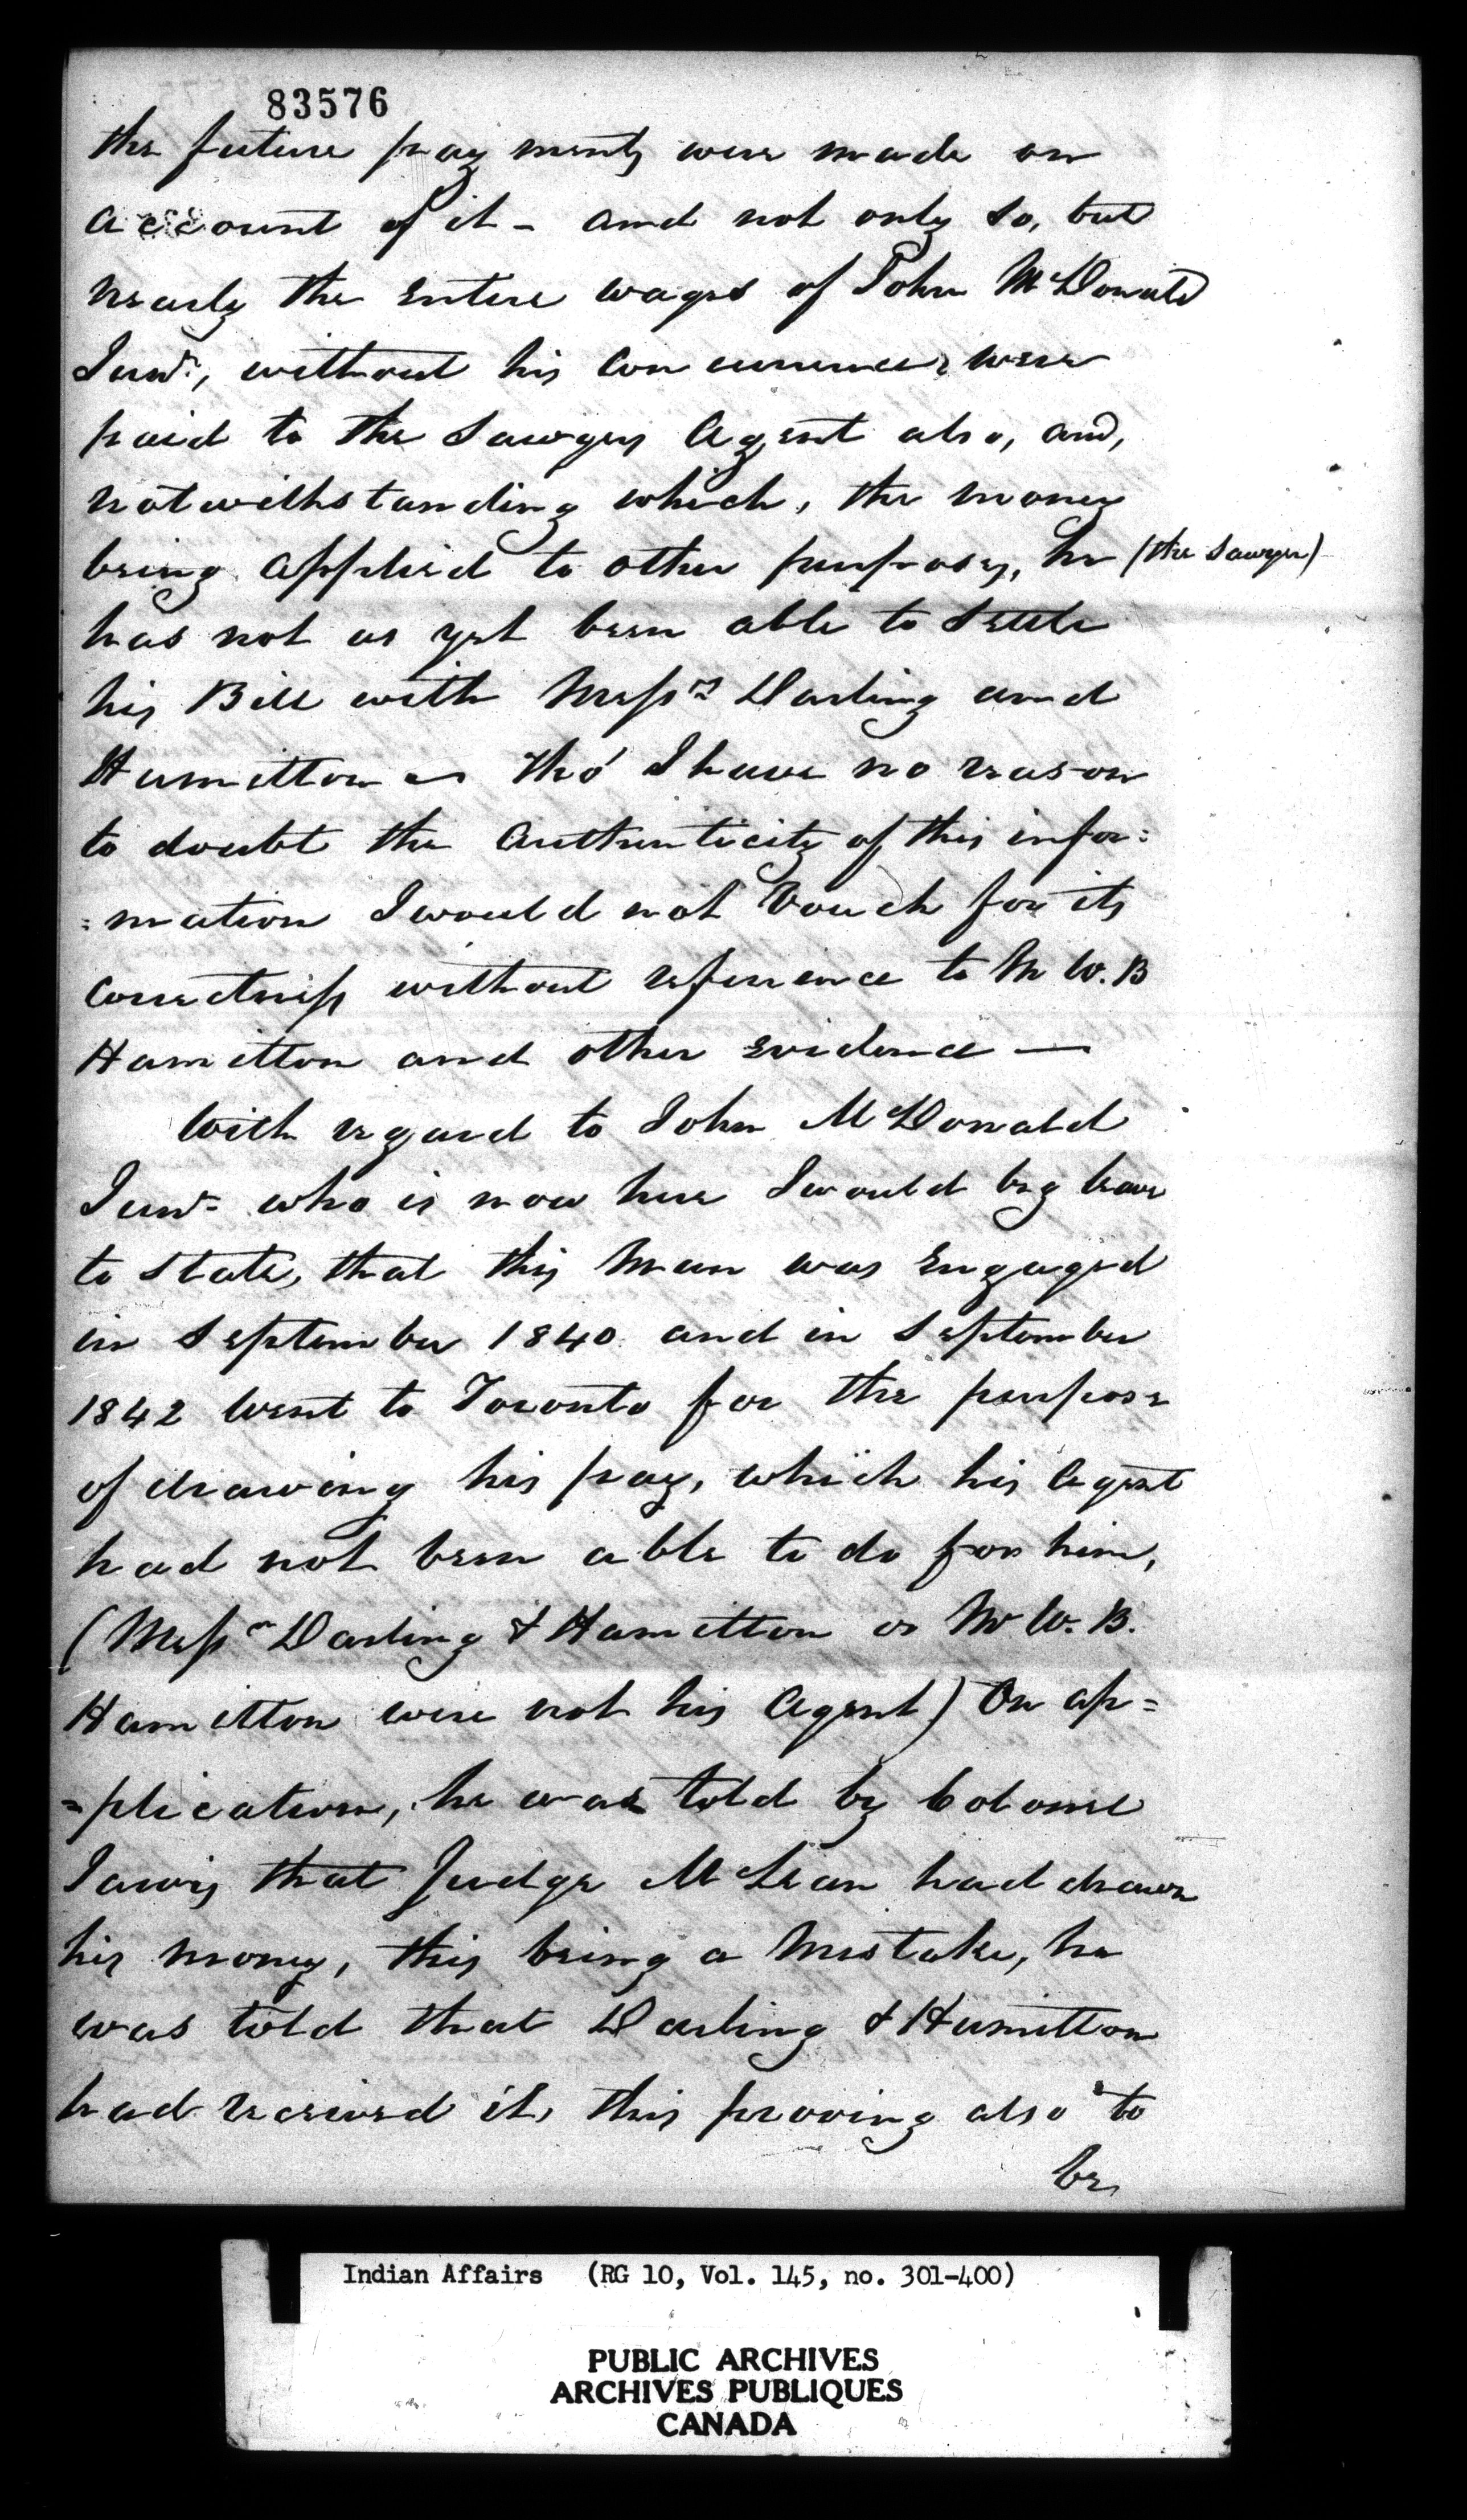 83576
the future payments were made on
account of it - and not only so, but
nearly the entire wages of John McDonald
Junr, without his concurrence, were
paid to the Sawyers Agent also, and,
notwithstanding which, the money
being applied to other purposes, he (the Sawyer)
has not as yet been able to settle
his Bill with Messrs Darling and
Hamilton - tho' I have no reason
to doubt the Authenticity of this infor=
=mation I would not Vouch for its
correctness without reference to Mr W. B
Hamilton and other evidence —
With regard to John McDonald
Junr who is now here I would beg leave
to state, that this Man was Engaged
in September 1840 and in September
1842 went to Toronto for the purpose
of drawing his pay, which his Agent
had not been able to do for him,
(Messrs Darling & Hamilton or Mr W. B.
Hamilton were not his Agent) On ap=
=plication, he was told by Colonel
Jarvis that Judge McLean had drawn
his money, this being a Mistake, he
was told that Darling & Hamilton
had received it, this proving also to
be,
Indian Affairs (RG 10, Vol. 145, no. 301-400)
PUBLIC ARCHIVES
ARCHIVES PUBLIQUES
CANADA